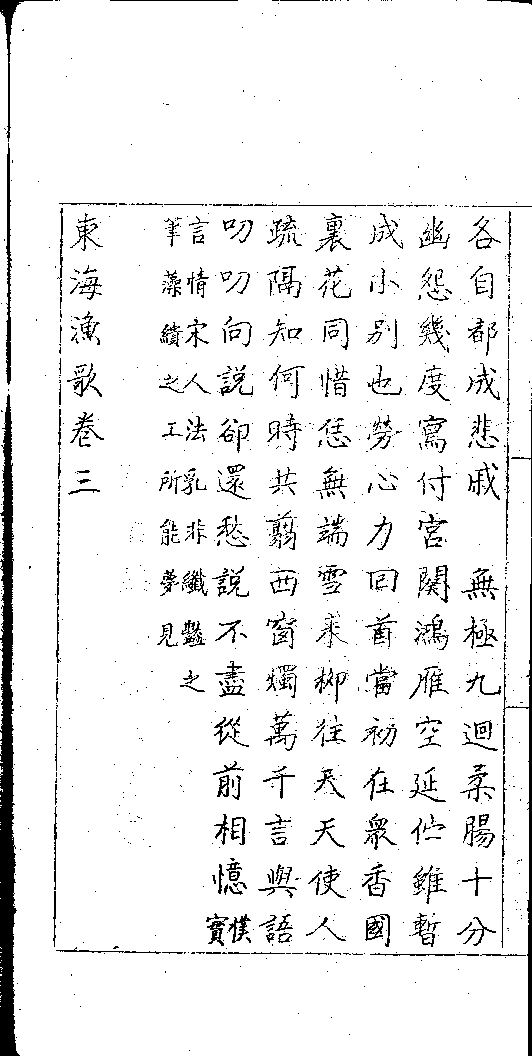 各自都成悲戚　無極九迴柔腸十分
幽怨幾度寫付宮閑鴻雁空延佇雖暫
成小別也勞心力回首當初在眾香國
裏花同惜恁無端雪來柳往天天使人
疏隔知何時共翦西窗燭萬千言與語
叨叨向說卻還愁說不盡從前相憶樸實
言情宋人法乳非纖豔之
筆藻繢之工所能夢見
東海漁歌卷三